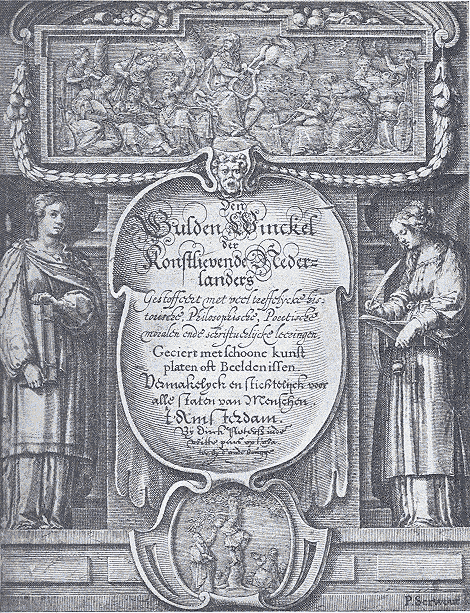 Den
Gulden Winckel
der
Konstlievende Neder-
landers
Gestoffeert met veel treffelycke his-
torische, Philosophische, Poeetische
moralen ende schriftuerlijcke leeringen.
Geciert met schoone kunst
platen oft Beeldenissen
Vermakelyck en stichtelyck voor
alle staten van Menschen
t'Amsterdam.
By Dirck